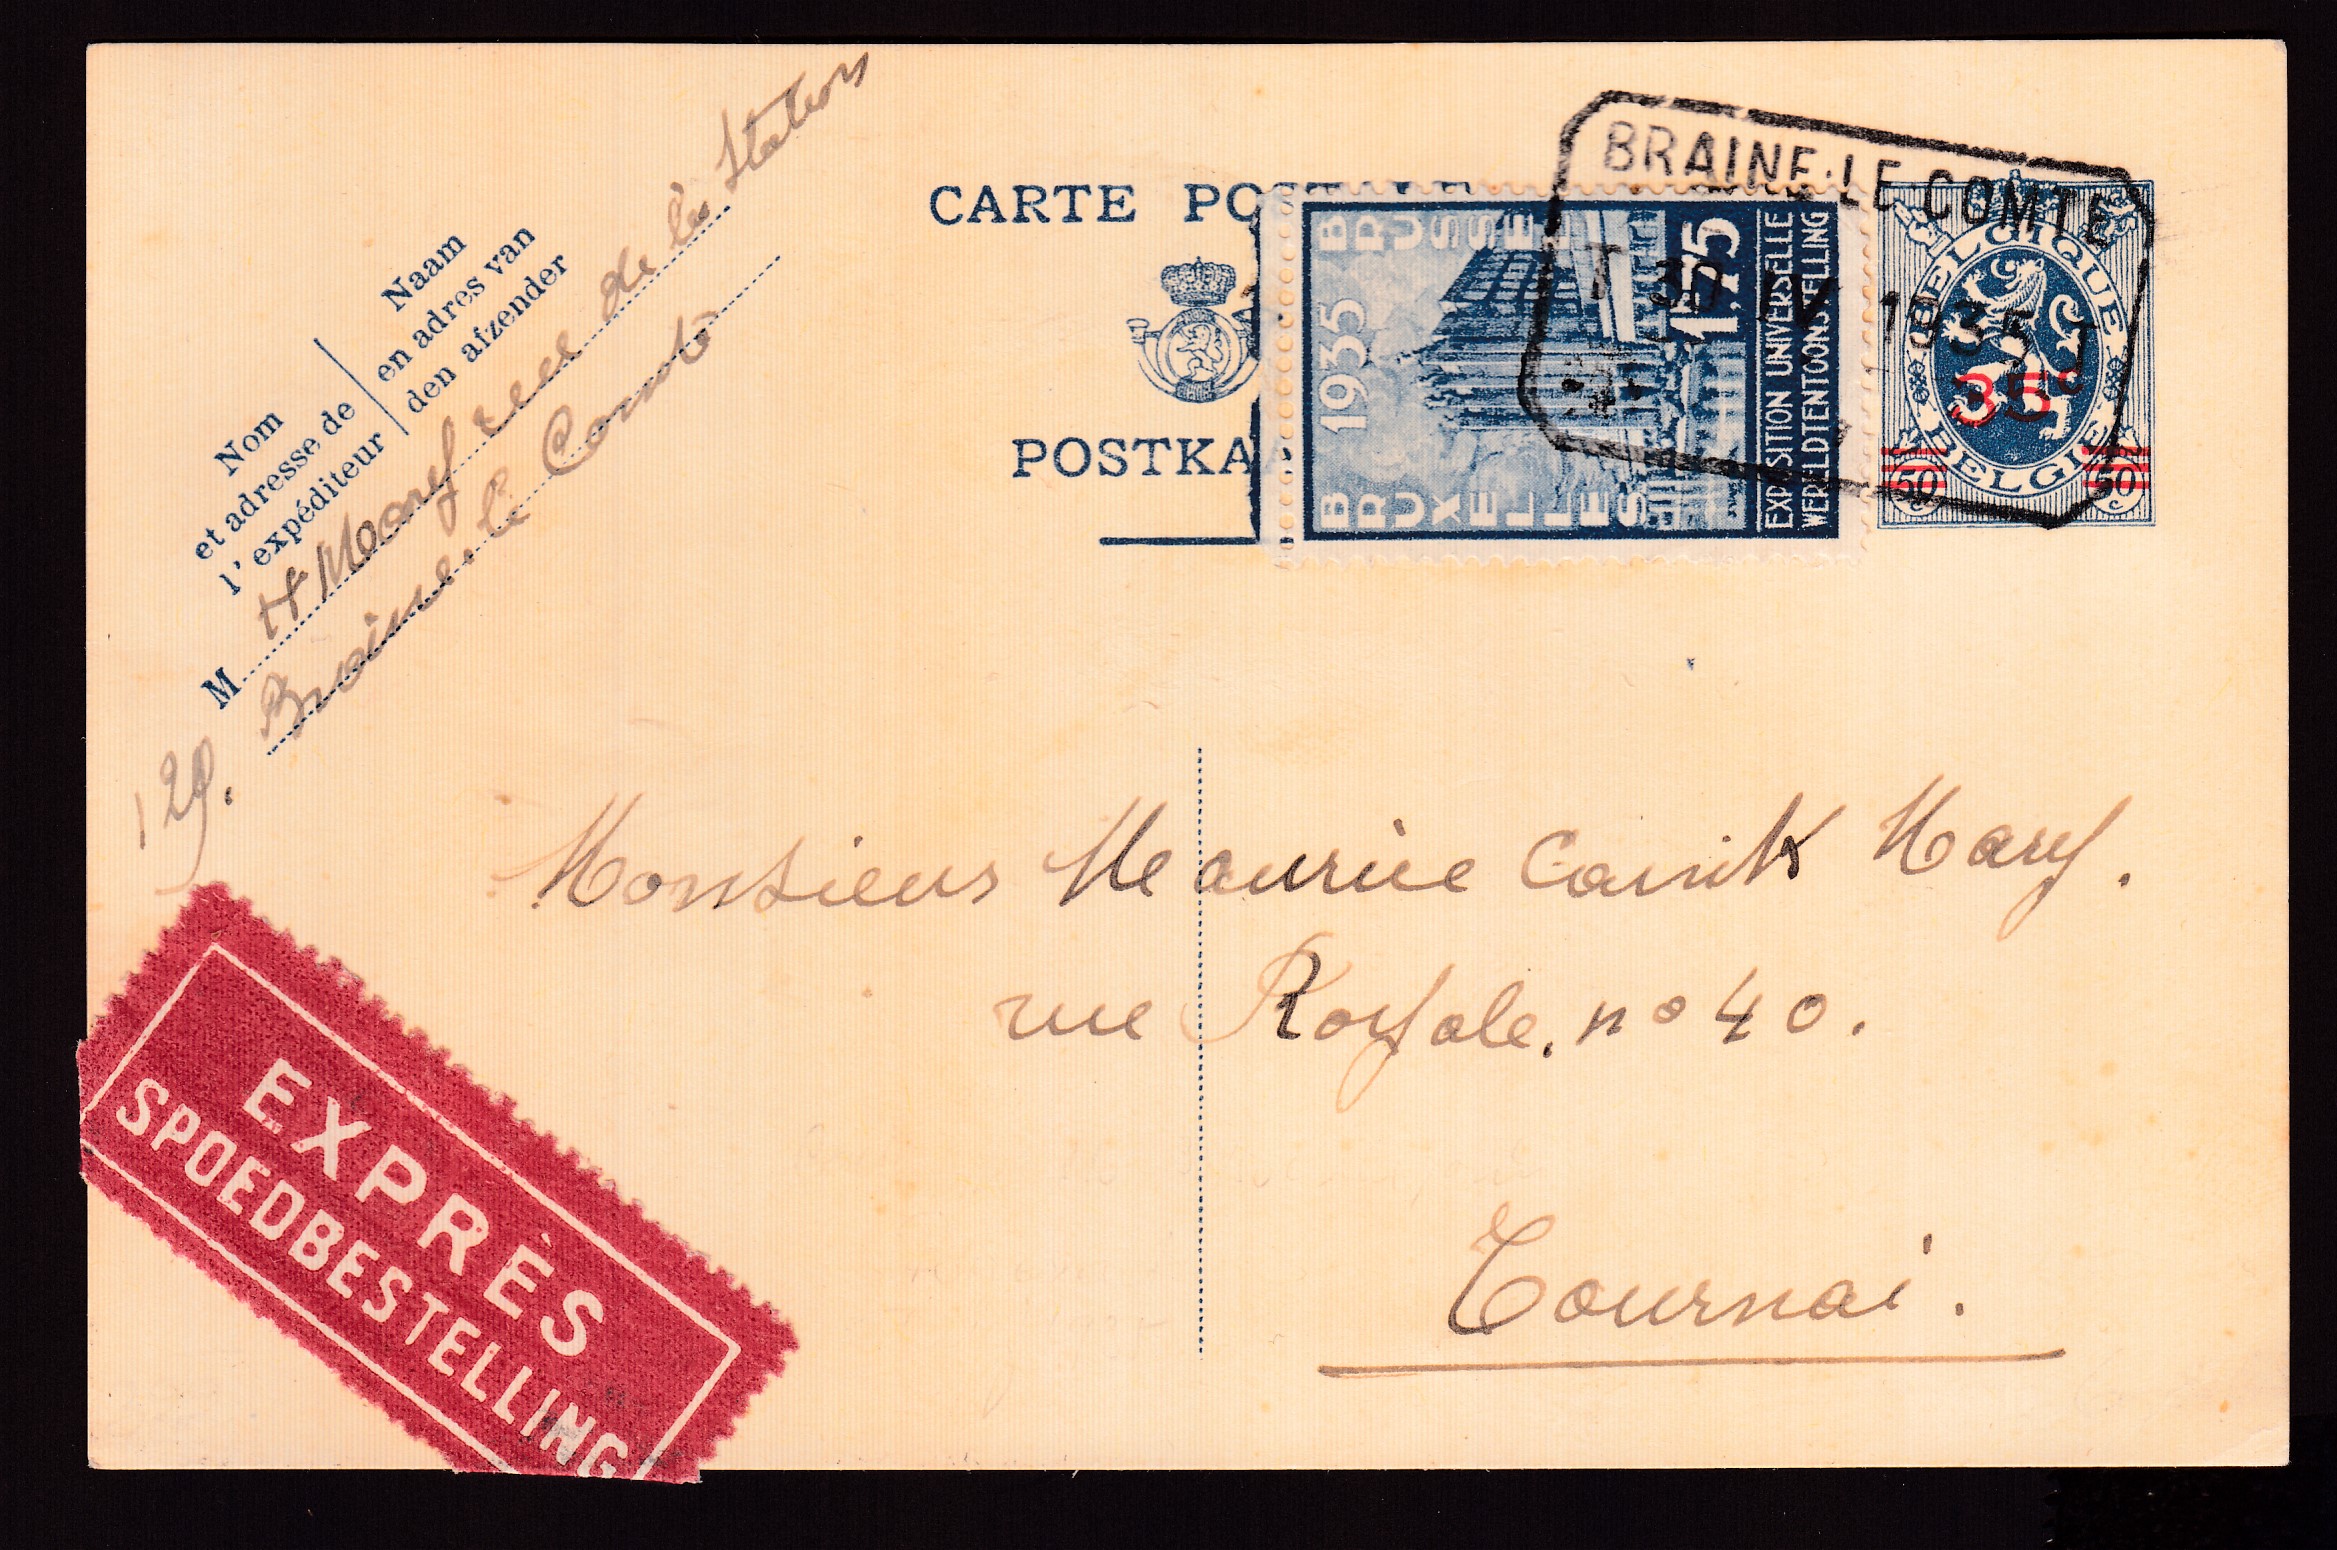 CARTE POSTALE
POSTKA
Nom
et adresse de
l'expéditeur
Naam
en adres van
den afzender
M
rue de la Station
Braine-le Comte
129.
BRAINE-LE-COMTE
T 30 IV 1935 T
1935
BRUSSEL
BRUXELLES
1.75
EXPOSITION UNIVERSELLE
WERELDTENTOONSTELLING
BELGIQUE
35c
BELGIË
50 c
50 c
Monsieur Maurice
rue Royale. n° 40.
Tournai.
EXPRÈS
SPOEDBESTELLING